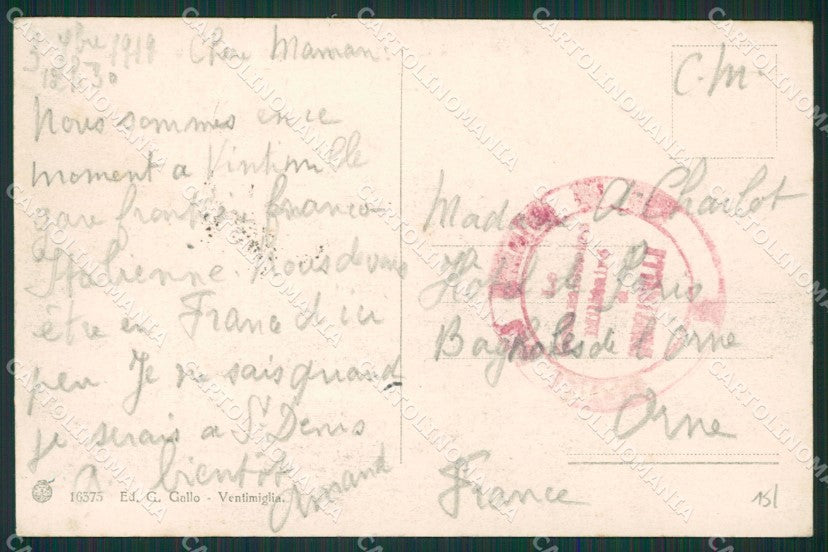 3 7bre 1919 Chere Maman:
18h30
Nous sommes en ce
moment a Vintimille
gare frontière franco-
Italienne. Nous devons
être en France d'ici
peu. Je ne sais quand
je serais a St Denis
A bientôt
Armand
16375 Ed. G. Gallo - Ventimiglia.
C. M.
Madame A. Charlot
Hotel de Paris
Bagnoles de l'Orne
Orne
France
15/
CARTOLINOMANIA